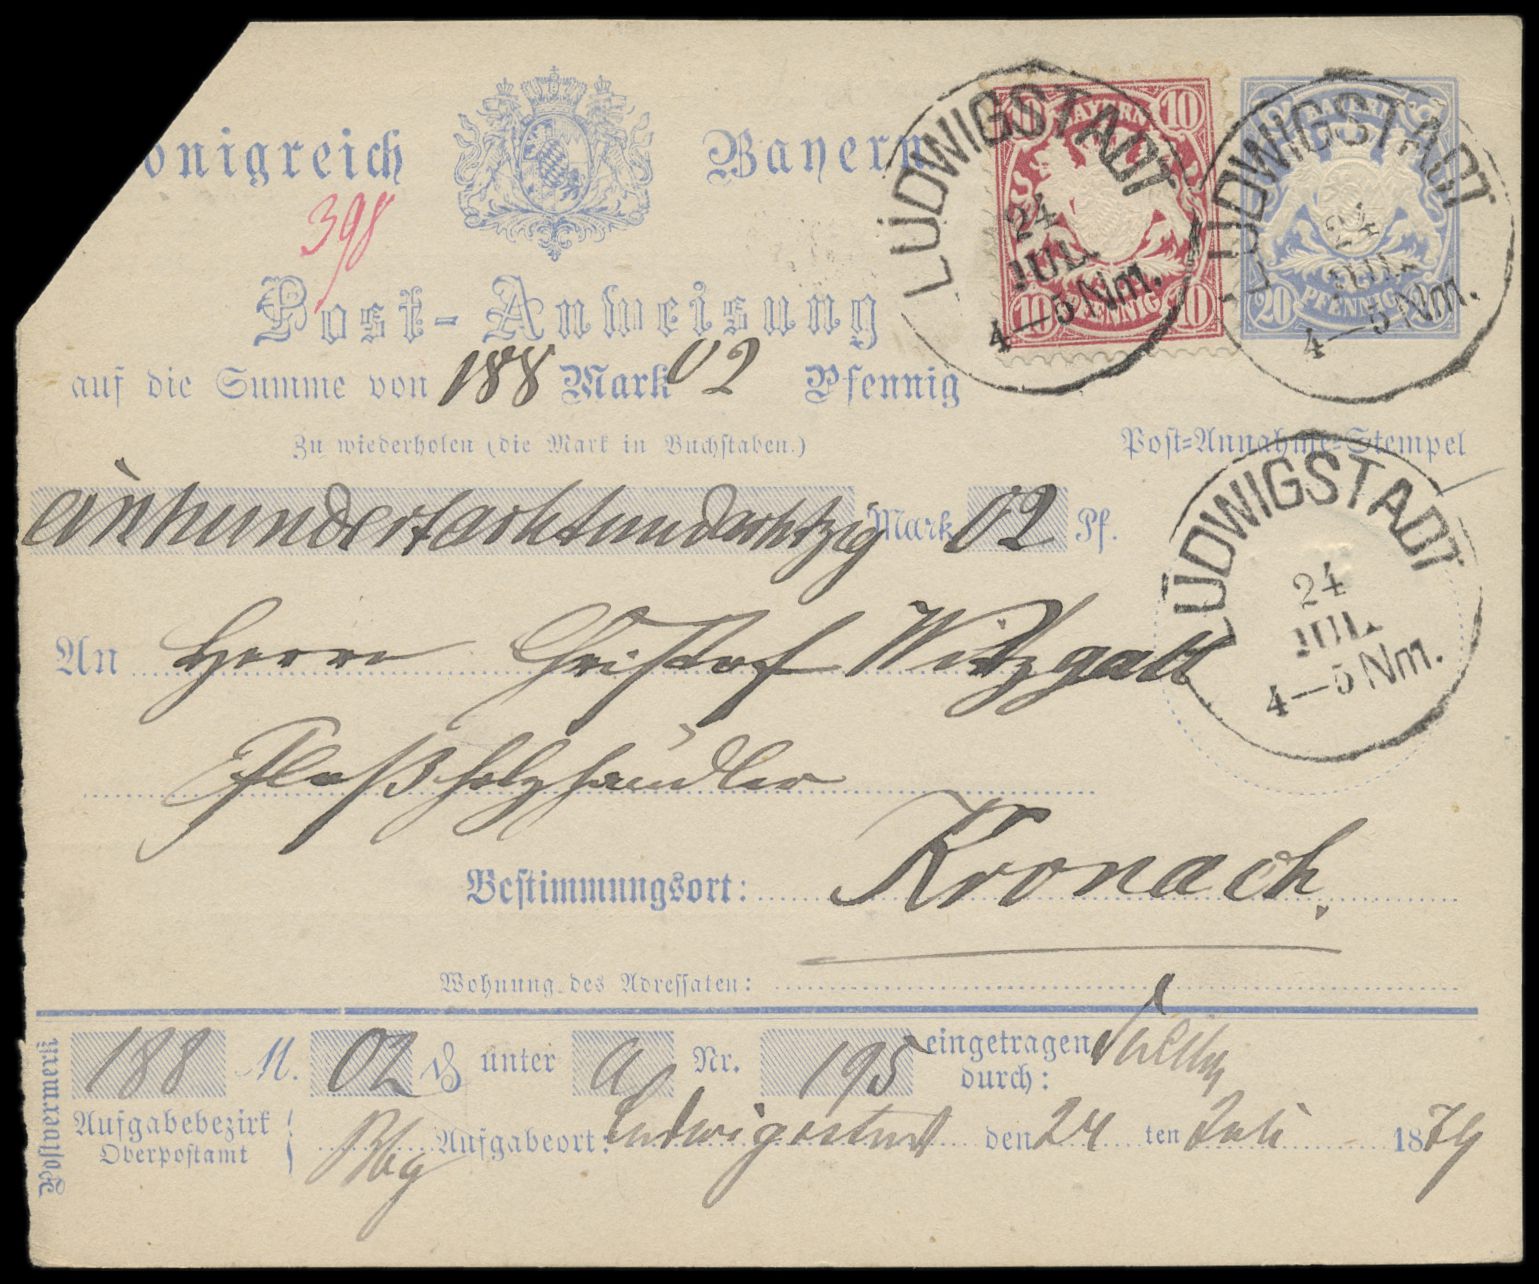 onigreich Bayern
398
Post-Anweisung
auf die Summe von 188 Mark 02 Pfennig
Zu wiederholen (die Mark in Buchstaben.)
einhundertachtundachtzig Mark 02 Pf.
An Herrn Christof Witzgall
Floßholzhändler
Bestimmungsort: Kronach.
Wohnung des Adressaten:
10 BAYERN 10
10 PFENNIG 10
LUDWIGSTADT
24
JUL.
4—5 Nm.
BAYERN
20 PFENNIG 20
LUDWIGSTADT
24
JUL.
4—5 Nm.
Post-Annahme-Stempel
LUDWIGSTADT
24
JUL.
4—5 Nm.
Postvermerk
188 M. 02 ₰ unter a Nr. 195 eingetragen
durch:
Aufgabebezirk
Oberpostamt
Bbg Aufgabeort: Ludwigsstadt den 24 ten Juli 1879